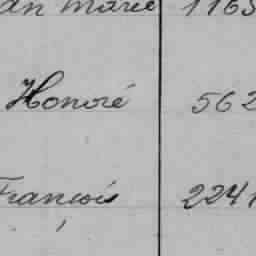 an Marie 1163
Honoré 562
François 2241